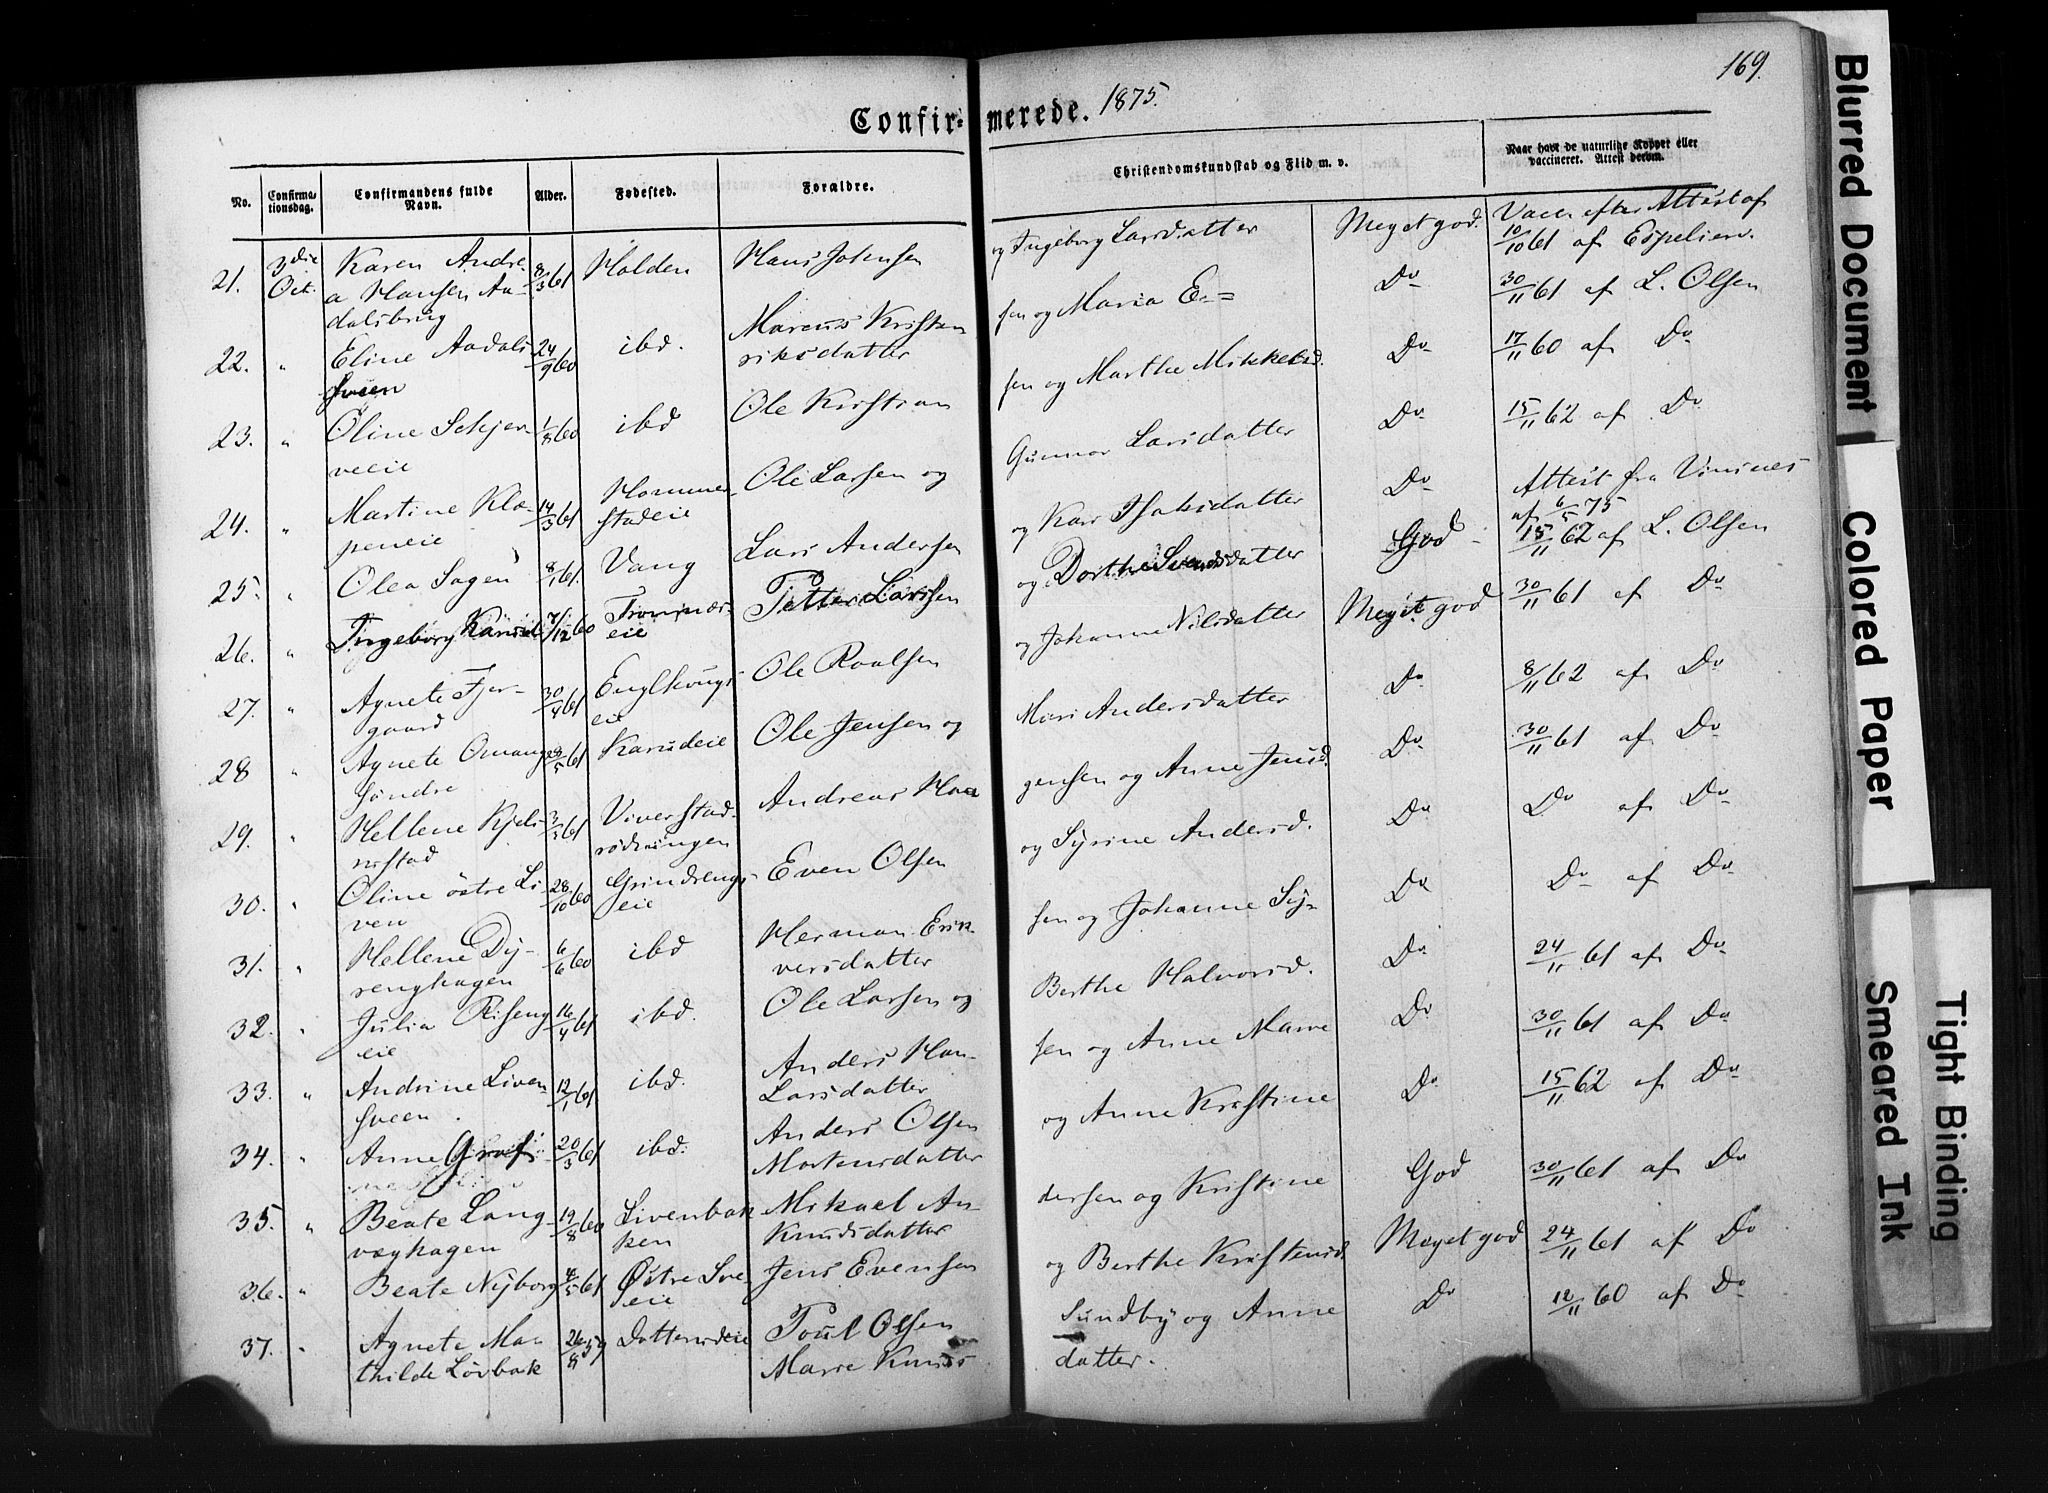 169.
Confirmerede. 1875.
No. Confirmationsdag. Confirmandens fulde Navn. Alder. Fødested. Forældre. Christendomskundskab og Flid m. v. Naar havt de naturlige Kopper eller vaccineret. Attest derom.
21. 3die Oct. Karen Andrea Hansen Aadalsbrug 8/3 61 Holden Hans Johnsen og Ingeborg Larsdatter Meget god. Vacc. efter Attest af 10/10 61 af Espelien.
22. " Eline Aadalssveen 24/9 60 ibd. Marcus Kristensen og Maria Eriksdatter Do 30/11 61 af L. Olsen
23. " Oline Skjerveeie 1/8 60 ibd Ole Kristiansen og Marthe Mikkelsd. Do 17/11 60 af Do
24. " Martine Klopeneie 14/3 61 Hommerstadeie Ole Larsen og Gunnor Larsdatter Do 15/11 62 af Do
25. " Olea Sagen 8/1 61. Vang Lars Andersen og Kari Isaksdatter Do Attest fra Vinsnes af 6/5 75
26. " Ingeborg Karud 7/12 60 Trommereie Petter Larssen og Dorthe Svendsdatter God 15/11 62 af L. Olsen
27. " Agnete Fjergaard 30/4 61 Englhougseie Ole Roalsen og Johanne Nilsdatter Meget god 30/11 61 af Do
28 " Agnete Omang søndre 28/5 61 Karudeie Ole Jensen og Mari Andersdatter Do 8/11 62 af Do
29. " Hellene Kjelsrstad 3/3 61 Viverstadrødningen Andreas Haagensen og Anne Jensd. Do 30/11 61 af Do
30. " Oline østre Liven 28/10 60 Grindrengseie Even Olsen og Syrine Andersd. Do Do af Do
31. " Hellene Dyrenghagen 6/6 60 ibd Herman Eriksen og Johanne Syversdatter Do Do af Do
32. " Julia Risengeie 16/4 61 ibd. Ole Larsen og Berthe Halvorsd. Do 24/11 61 af Do
33. " Andrine Livensveen. 12/1 61 ibd. Anders Hansen og Anne Marie Larsdatter Do 30/11 61 af Do
34. " Anne 20/3 61 ibd. Anders Olsen og Anne Kristine Mortensdatter Do 15/11 62 af Do
35. " Beate Langvæghagen 19/8 60 Livenbakken Mikael Andersen og Kristine Knudsdatter God 30/11 61 af Do
36. " Beate Nyborg 4/5 61 Østre Sveeie Jens Evensen og Berthe Kristensd. Meget god 24/11 61 af Do
37. " Agnete Mathilde Lövbak 26/8 59 Dottersdeie Poul Olsen Sundby og Anne Marie Knudsdatter. Do 12/11 60 af Do
Blurred Document
Colored Paper
Smeared Ink
Tight Binding